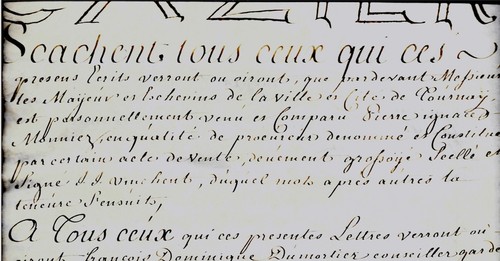 Scachent tous ceux qui ces
presens Ecrits verront ou oiront, que pardevant Messieurs
les Mayeur et Eschevins de la ville et Cité de Tournay
est personnellement venu et Comparu Pierre ignace
Monnier, en qualité de procureur denommé et Constitué
par certain acte de vente, deuement grossoyé Scellé et
Signé J. J. vinchent, duquel mot après autres la
teneure S'ensuit,
A Tous ceux qui ces presentes Lettres verront ou
oiront, françois Dominique Dumortier conseiller garde